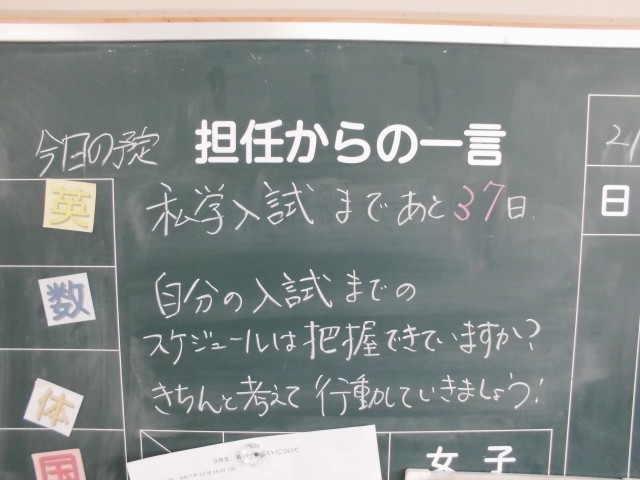 今日の予定
担任からの一言
英
数
体
国
私学入試まであと37日
自分の入試までの
スケジュールは把握できていますか?
きちんと考えて行動していきましょう!
日
女子